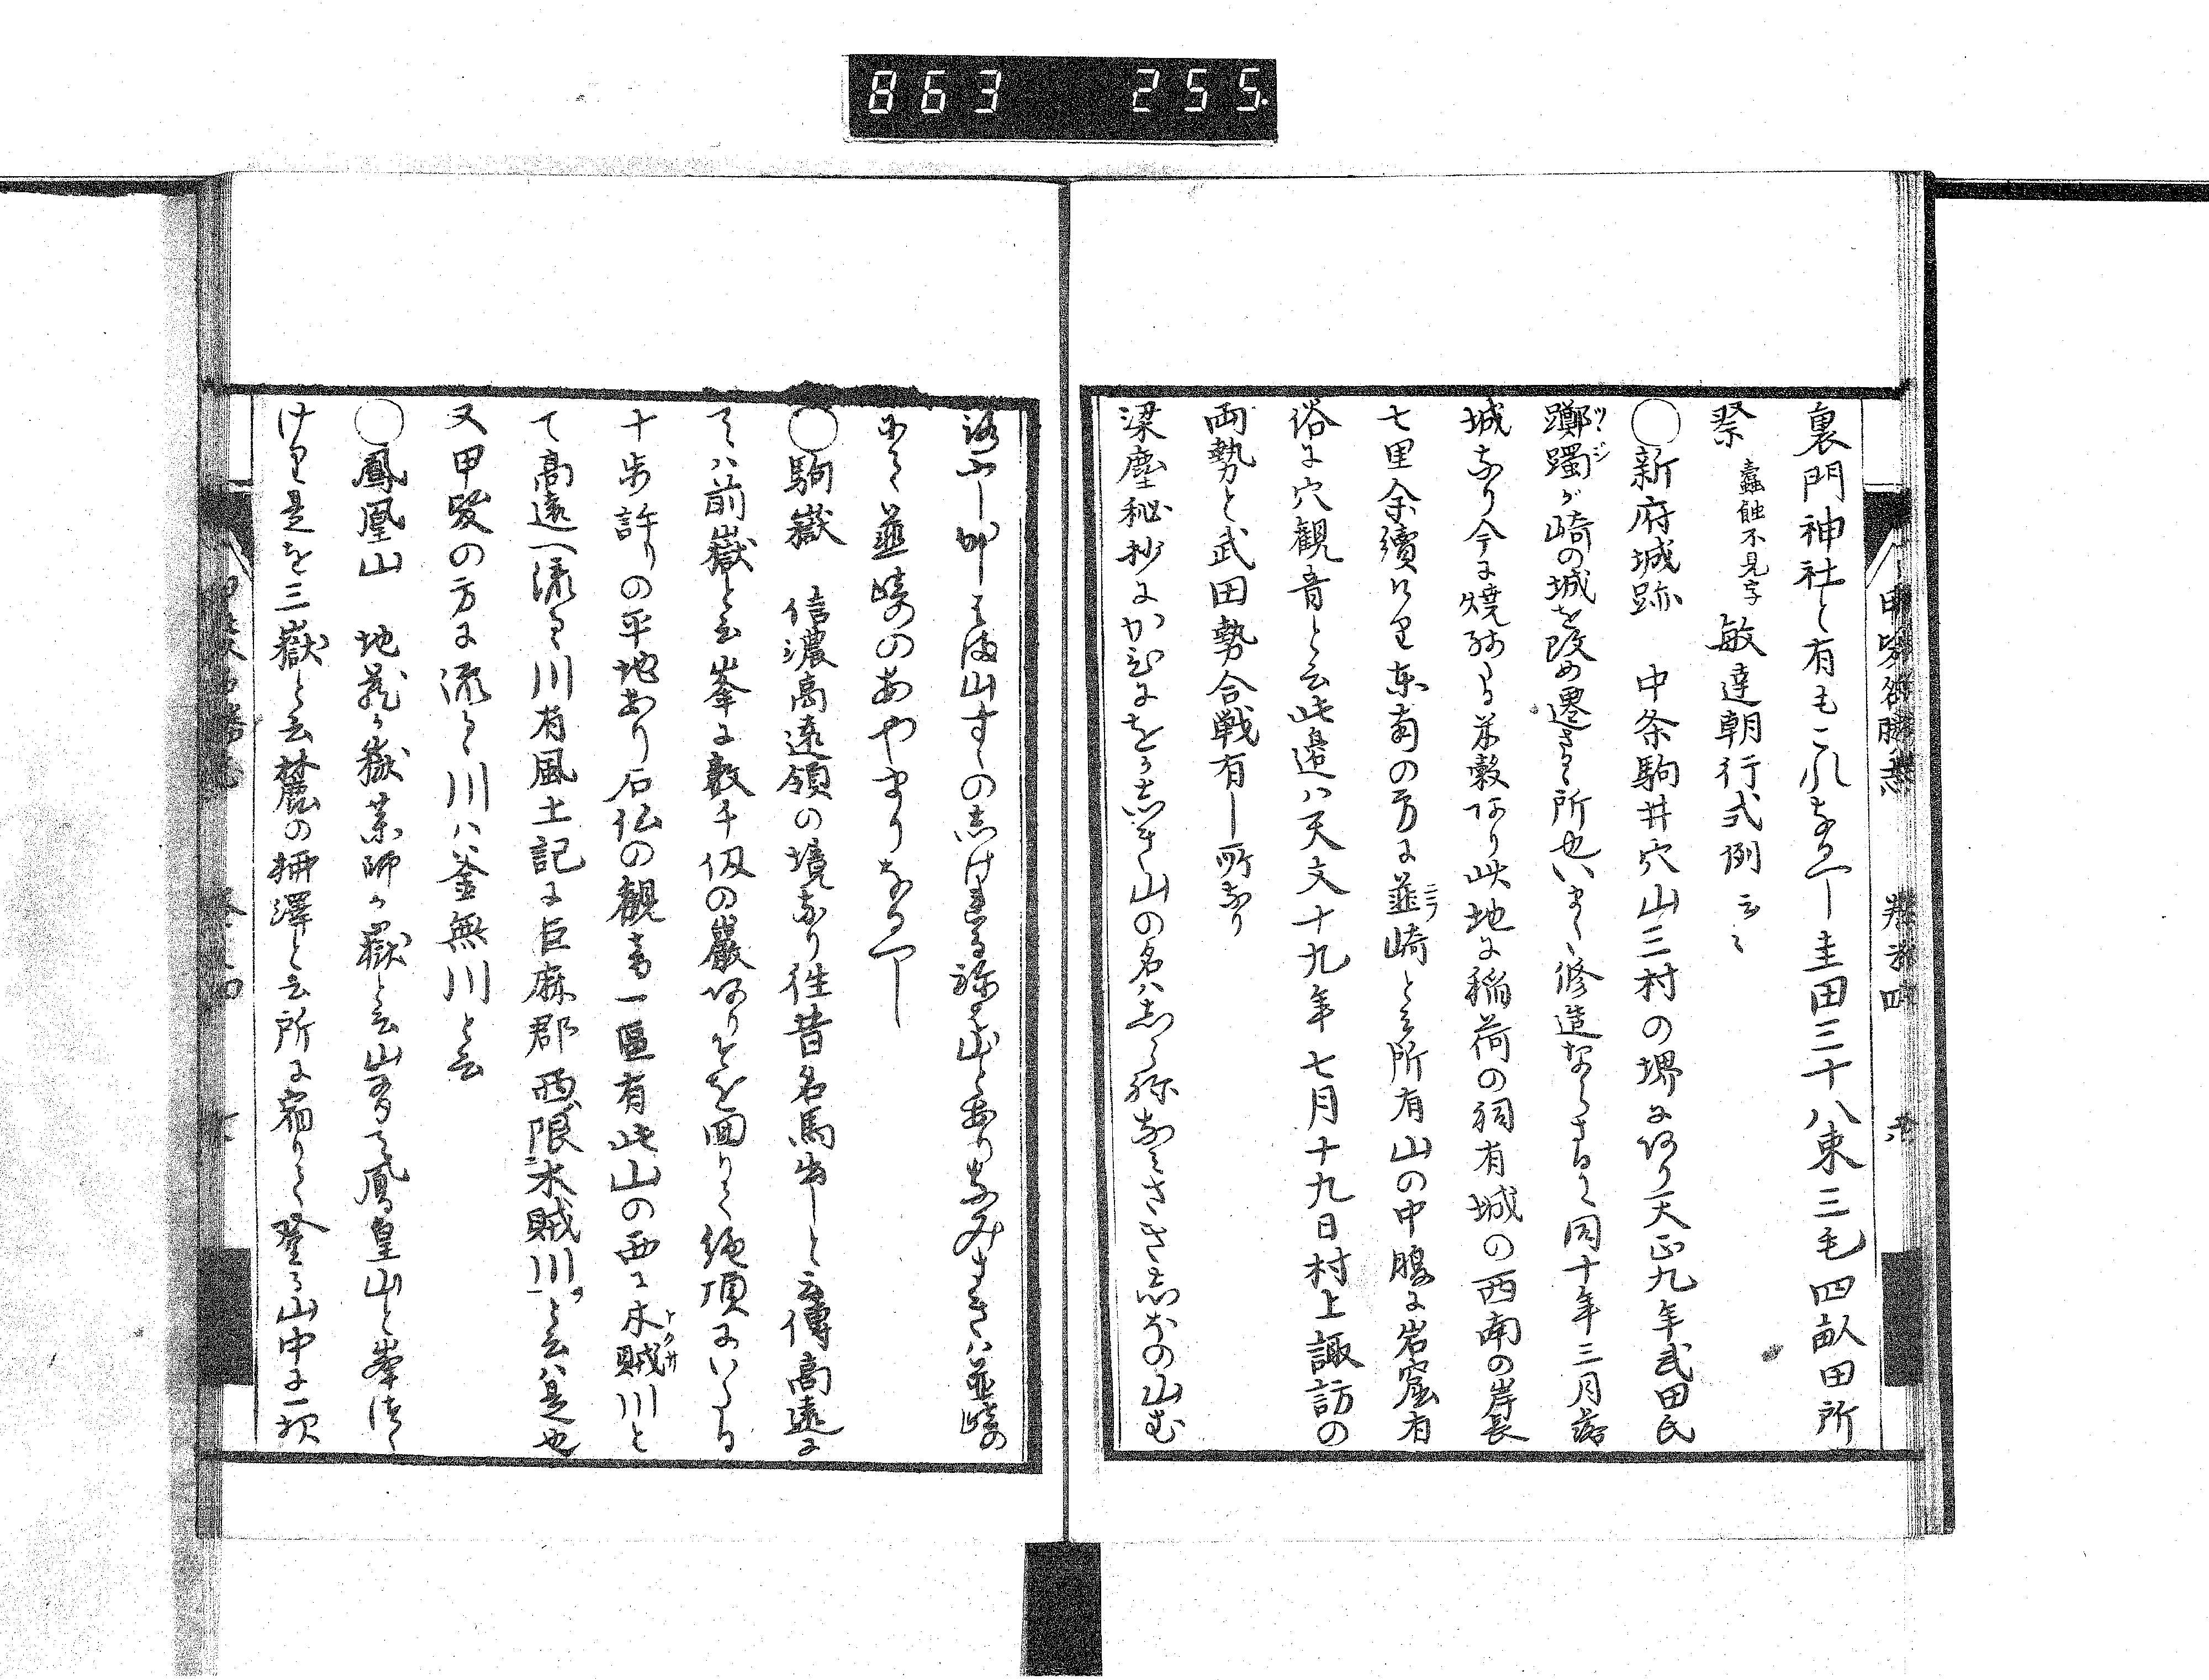 863 255
甲斐名勝志 巻之四 六
裏門神社と有もこれなるへし圭田三十八束三毛四畝田所
祭 蠹蝕不見字 敏達朝行式例云々
○新府城跡 中条駒井穴山三村の堺にあり天正九年武田氏
躑躅ツヽジが崎の城を改め遷さる所也いまた修造ならさるに同十年三月落
城なり今に焼納る米穀あり此地に稲荷の祠有城の西南の岸長
七里余續けり東南の方に韮ニラ崎と云所有山の中腹に岩窟有
俗に穴觀音と云此邉ハ天文十九年七月十九日村上諏訪の
両勢と武田勢合戦有し所なり
梁塵秘抄にかひにをかしき山の名ハしらねなみさきしほの山む
ろふし
山すゝの志けれる
韮崎の
にら韮崎のあやまりなるへし
○駒嶽 信濃高遠領の境なり徃昔名馬出しと云傳高遠に
てハ前嶽と云峯に數千仭の巌ありそを回りて絶頂にいたる
十歩許りの平地あり石仏の觀音一區有此山の西に木賊トクサ川と
て高遠へ流るゝ川有風土記に巨麻郡西限木賊川と云ハ是也
又甲斐の方に流るゝ川ハ釜無川と云
○鳳凰山 地蔵か嶽薬師か嶽と云山有て鳳凰山と峯つゝ
けり是を三嶽と云麓の柳澤と云所に宿りて登る山中に一夜